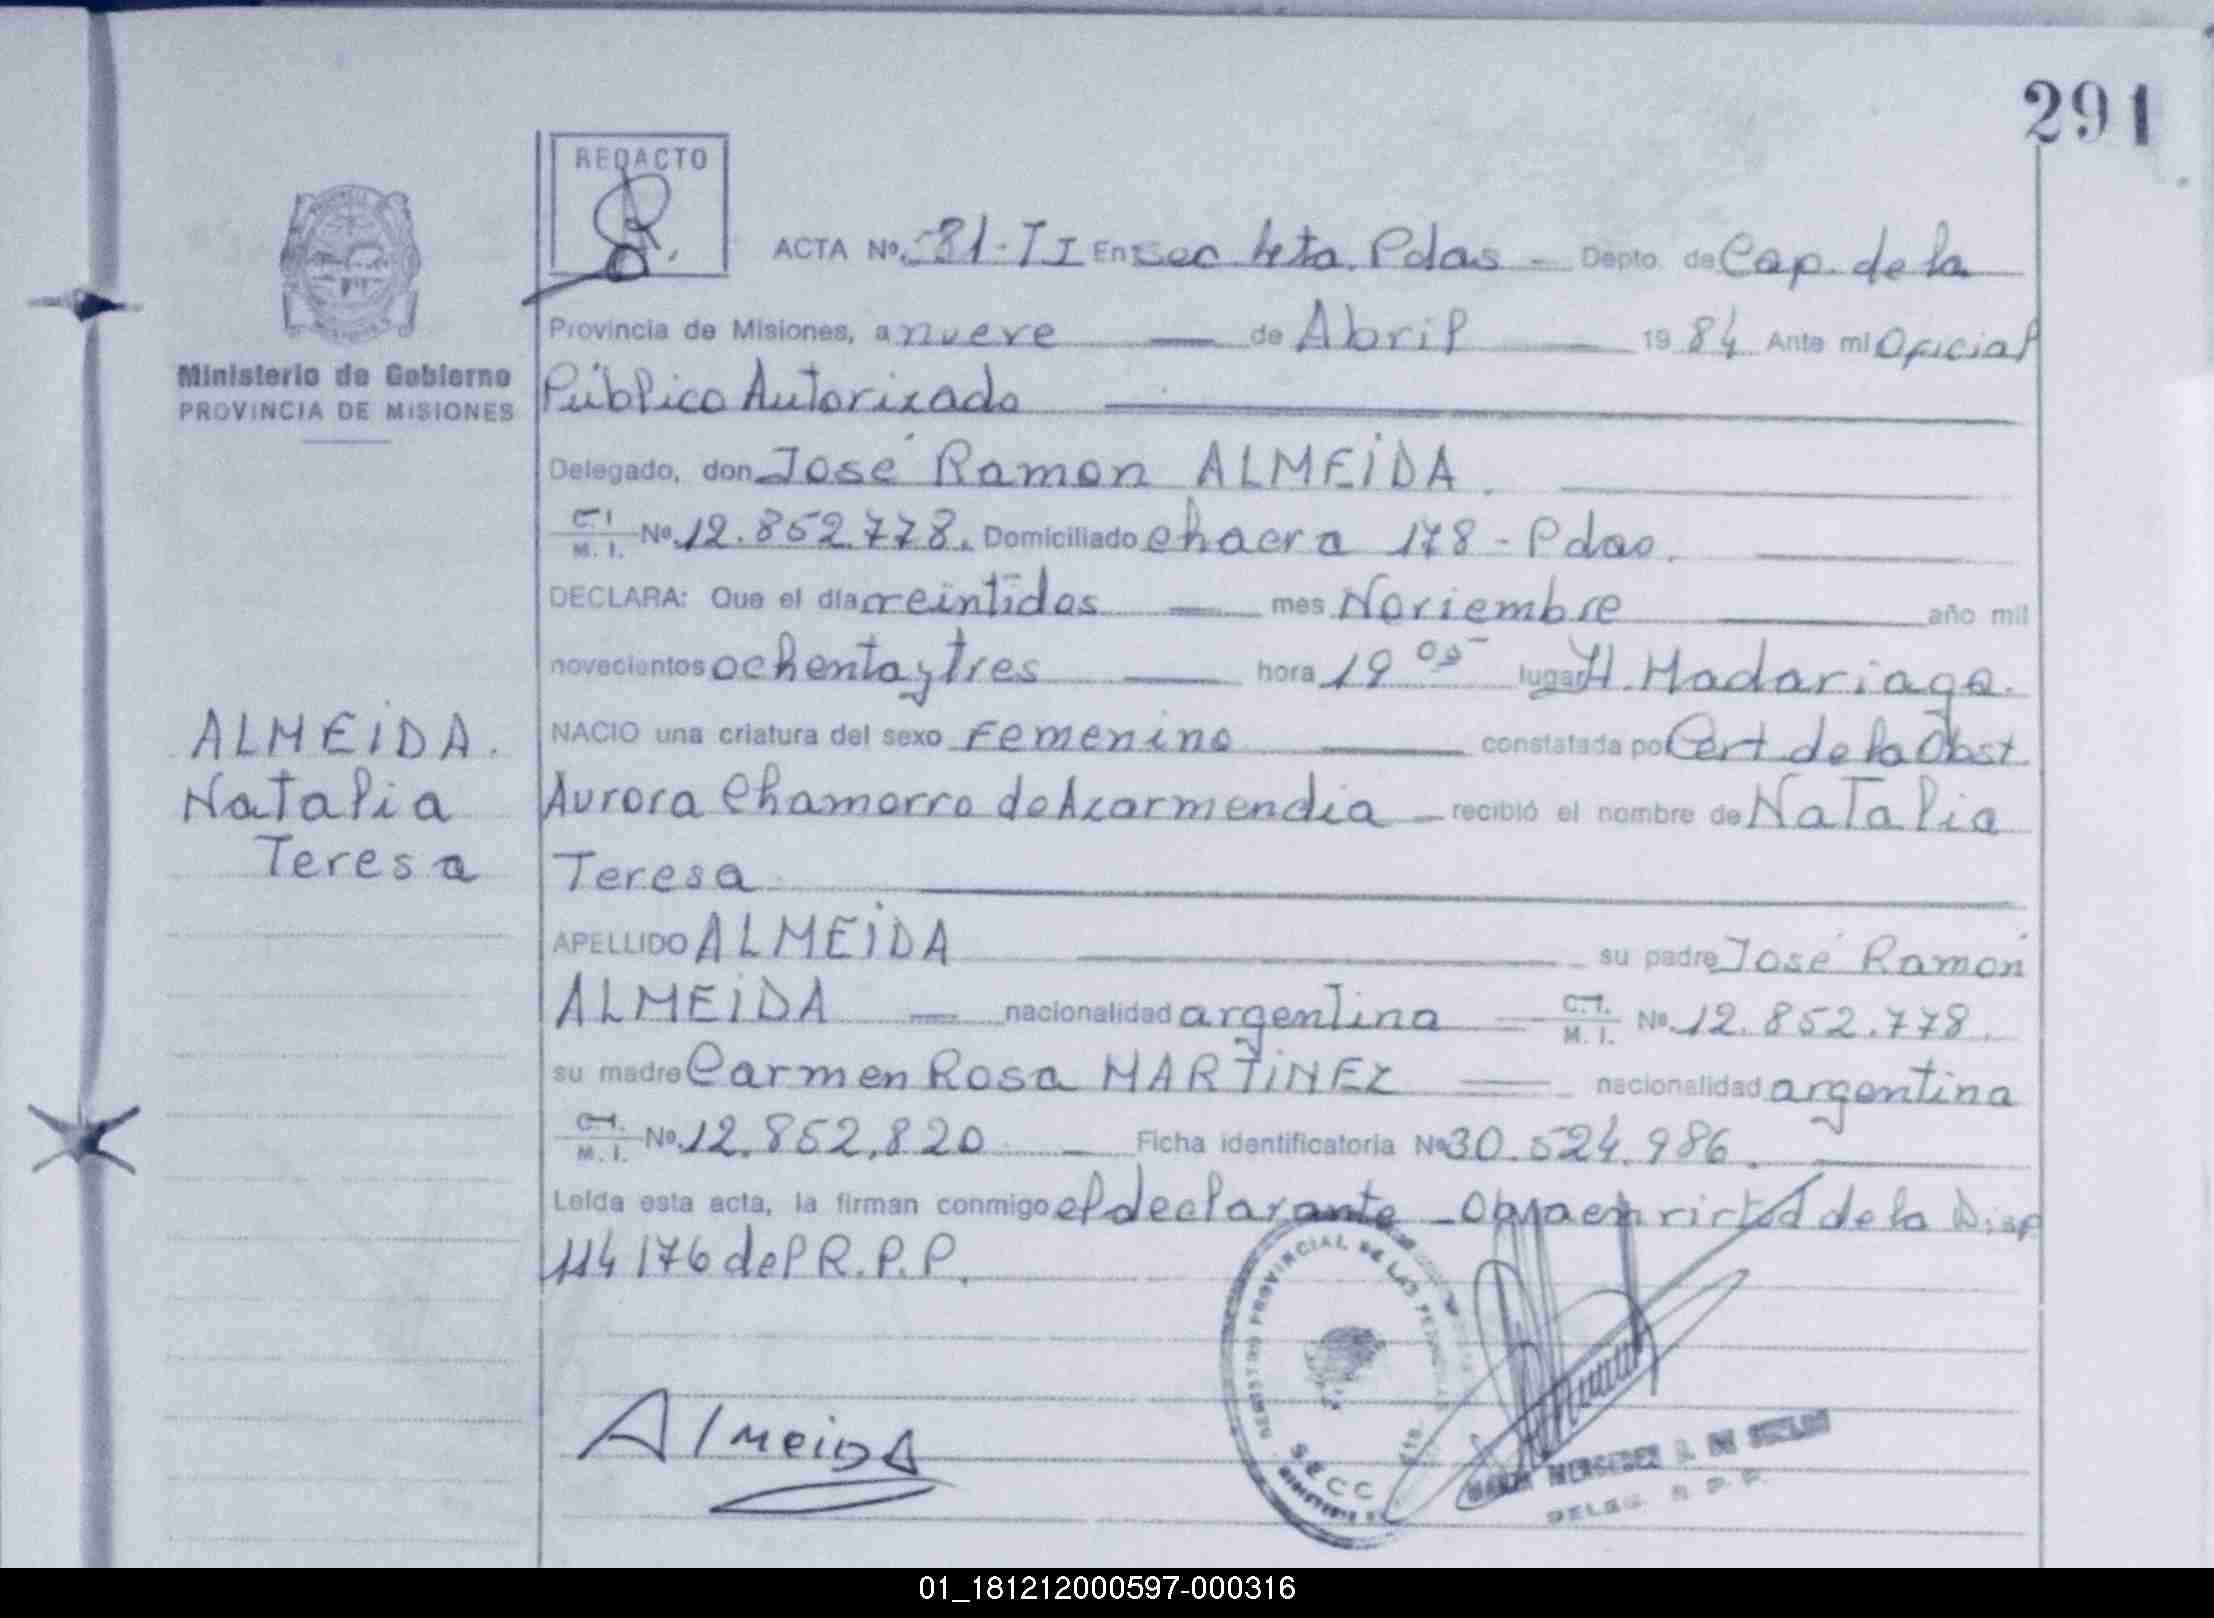 291
REDACTO
ACTA Nº 581-II En Sec 4ta. Pdas - Depto. de Cap. de la
Provincia de Misiones, a nueve de Abril 1984 Ante mi Oficial
Ministerio de Gobierno
PROVINCIA DE MISIONES
Público Autorizado
Delegado, don José Ramon ALMEIDA.
C.I. M.I. Nº 12.852.778. Domiciliado chacra 178 - Pdas.
DECLARA: Que el día veintidos mes Noviembre año mil
novecientos ochenta y tres hora 19 05 lugar H. Madariaga.
NACIO una criatura del sexo Femenino constatada po Cert de la Obst
ALMEIDA.
Natalia
Teresa
Aurora Chamorro de Azarmendia recibió el nombre de Natalia
Teresa
APELLIDO ALMEIDA su padre José Ramón
ALMEIDA nacionalidad argentina C.I. M.I. Nº 12.852.778.
su madre Carmen Rosa MARTINEZ nacionalidad argentina
C.I. M.I. Nº 12.852.820 Ficha identificatoria Nº 30.524.986.
Leída esta acta, la firman conmigo el declarante - Obra en virtud de la Disp
114/76 del R.P.P.
REGISTRO PROVINCIAL DE LAS PERSONAS
SECC 4ta.
Almeida
MARIA MERCEDES
DELEG. R.P.P.
01_181212000597-000316